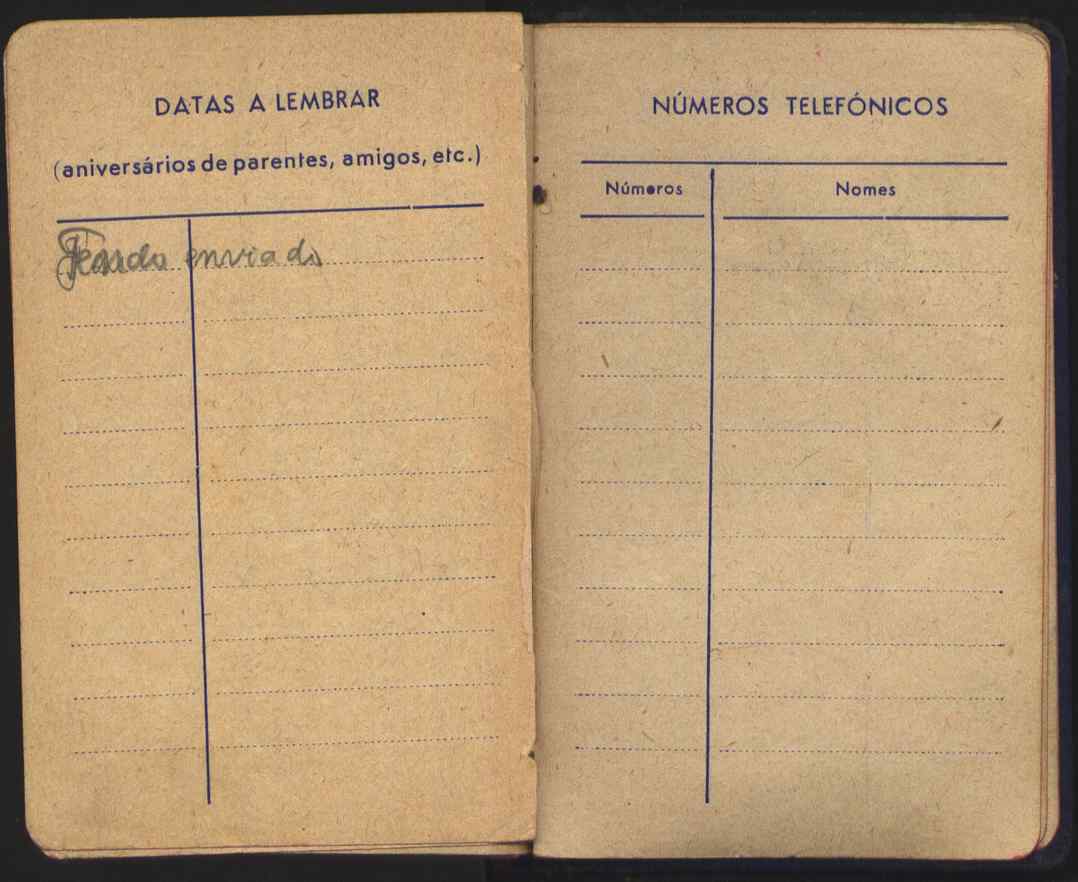 DATAS A LEMBRAR
(aniversários de parentes, amigos, etc.)
enviado
NÚMEROS TELEFÓNICOS
Números Nomes